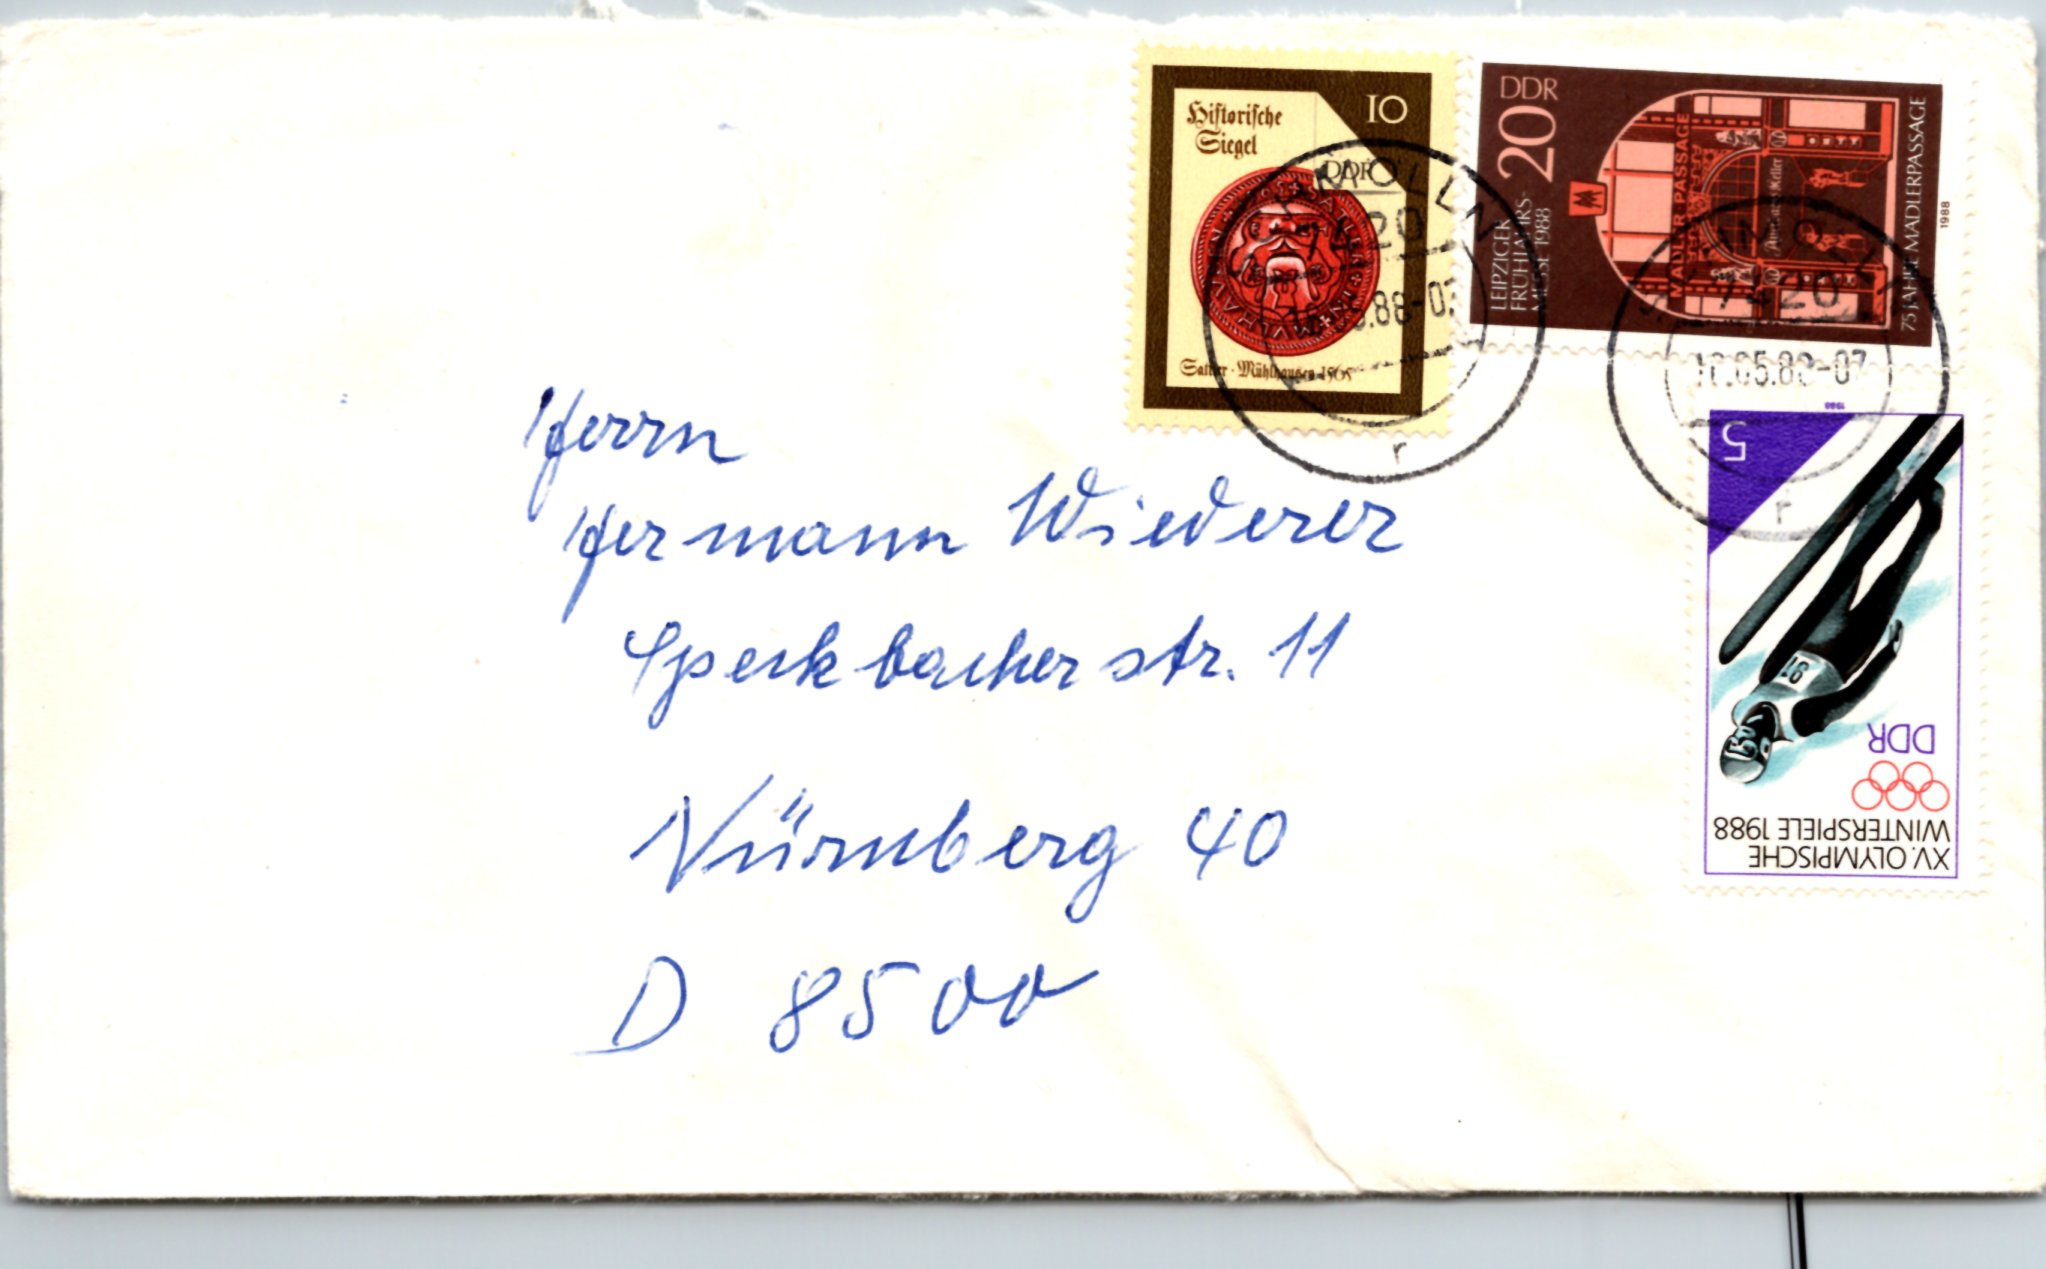 Historische
Siegel
10
DDR
Sattler · Mühlhausen 1565
DDR
20
LEIPZIGER
FRÜHJAHRS-
MESSE 1988
MÄDLER PASSAGE
75 JAHRE MÄDLERPASSAGE
1988
SCHMÖLLN
7420
.88-07
r
7420
.05.88-07
r
1988
5
91
DDR
XV. OLYMPISCHE
WINTERSPIELE 1988
Herrn
Hermann Wiederer
Speckbacherstr. 11
Nürnberg 40
D 8500